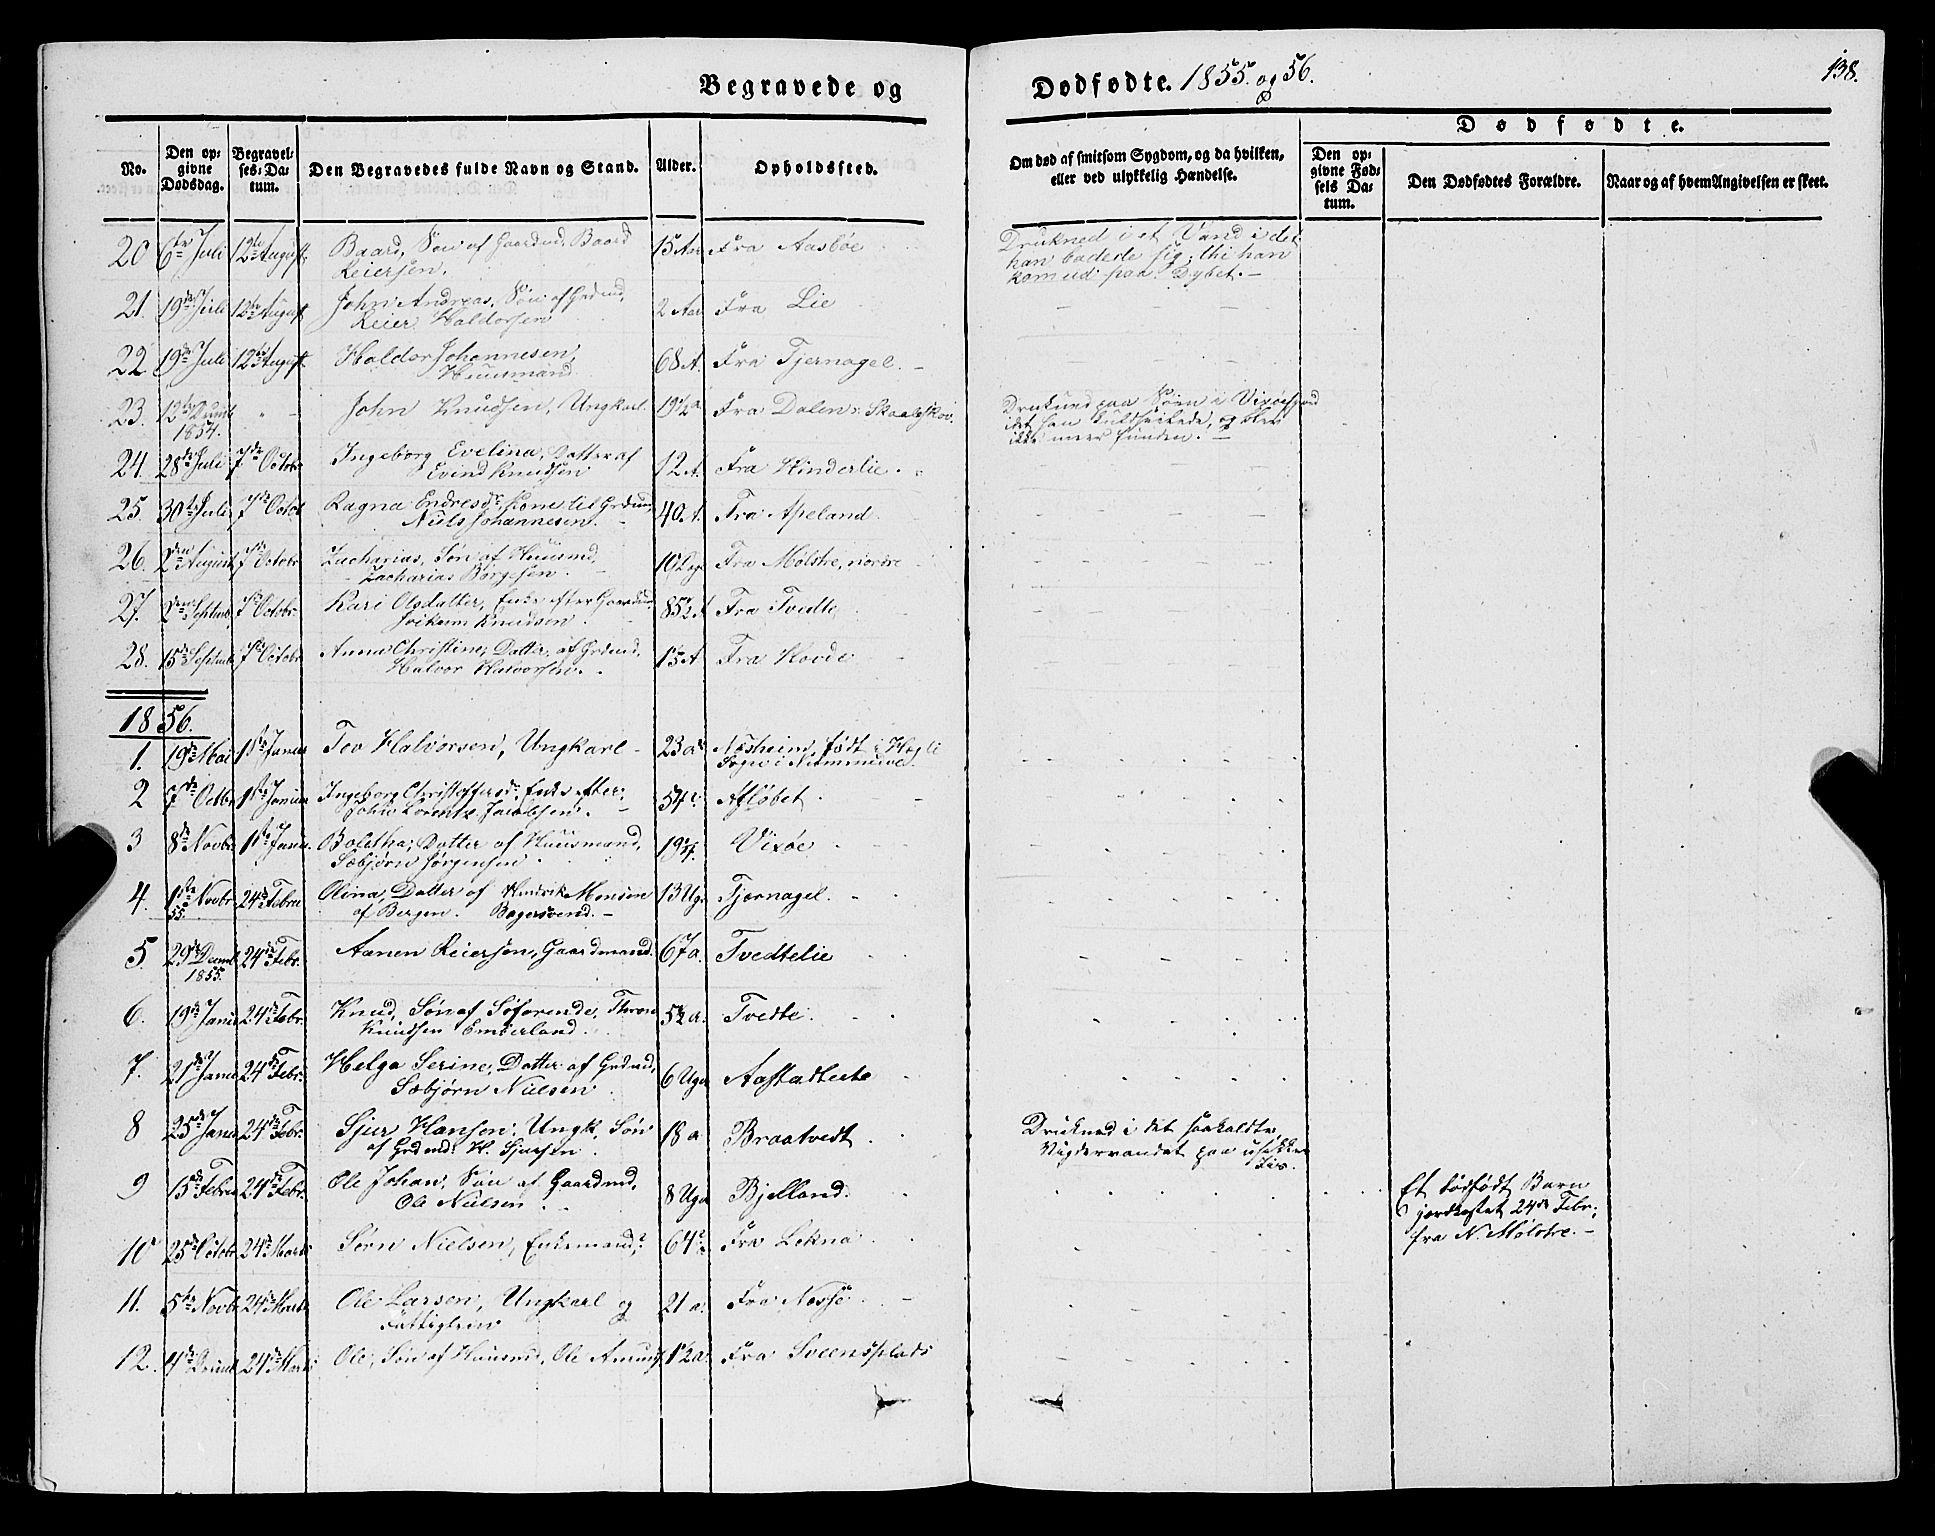 Begravede og
Dødfødte. 1855. og 56.
138.
No.
Den op-
givne
Dødsdag.
Begravel-
ses-Da-
tum.
Den Begravedes fulde Navn og Stand.
Alder.
Opholdssted.
Om død af smitsom Sygdom, og da hvilken,
eller ved ulykkelig Hændelse.
Dødfødte.
Den op-
givne Fød-
sels Da-
tum.
Den Dødfødtes Forældre.
Naar og af hvem Angivelsen er skeet.
20 6te Juli 12te August Baard, Søn af Gaardmd. Baard
Reiersen. 15 Aar Fra Aasbøe
Drukned i et Vand i det
han badede sig; thi han
kom ud paa Dybet. -
21. 19de Juli 12te August John Andreas, Søn af Grdmd.
Reier Haldorsen 2 Aar Fra Lie
22 19de Juli 12te August Haldor Johannesen,
Huusmand 68 A. Fra Tjernagel. -
23. 12te Decmb
1854. " - John Knudsen, Ungkarl. 19 1/2 a Fra Dalen i Skaalskov.
Druknet paa Søen i
idet han kuldseilede, og blev
ikke meer funden. -
24. 28de Juli 7de Octobr Ingeborg Evelina, Datter af
Evind Knudsen 12 A. Fra Hinderlie.
25. 30te Juli 7de Octob Ragna Endresdr. Kone til Grdmd.
Niels Johannesen. 40 A. Fra Apeland.
26. 2den August 7de Octobr Zacharias, Søn af Huusmd.
Zacharias Børgesen. 10 Dage Fra Mølstre, nordre
27. 2den Septemb. 7de Octobr. Kari Olsdatter, Enke efter Gaardmd.
Knudsen. 85 1/2 A Fra Tvedte
28. 15de Septemb 7de Octobr Anna Christine, Datter af Grdmd.
Halvor Halvorsen. 15 A Fra Hovde
1856.
1. 19de Mai 1ste Januar Tov Halvorsen, Ungkarl - 23 aar Næsheim, født i
Sogn i
2 7de Octbr 1ste Januar Ingeborg Christoffersdr. Enke efter
John Lorentz Jacobsen. - 54 Afløbet.
3 8de Novbr 1ste Janu. Boletha, Datter af Huusmand,
Sæbjørn Jørgensen 19 Vixøe
4. 1ste Novbr
55. 24de Febru Olina, Datter af Hendrik Monsen
af Bergen. Bagersvend. - 13 Uger Tjernagel.
5. 29de Decmb
1855. 24de Febr. Aanen Reiersen, Gaardmand. 67 a. Tvedtelie
6. 19de Janu 24de Febr. Knud, Søn af Søfarende, Thron
Knudsen Emberland. 5 1/2 a. Tvedte.
7. 21de Janu 24de Febr. Helga Serine, Datter af Grdmd,
Sæbjørn Nielsen 6 Uger
8 25de Janu 24de Febr. Sjur Hansen, Ungk. Søn
af Grdmd. H. Sjursen. 18 a Braatvedt
Druknet i det saakaldte
Vigdervandet paa usikker
Iis.
9 15de Febru 24de Febr. Ole Johan, Søn af Gaardmd,
Ole Nielsen. 8 Uger Bjelland.
Et dødfødt Barn
jordkastet 24de Febr.
fra N. Mølstre. -
10 25de Octobr 24de Marts Sørn Nielsen, Enkemand, 64 Fra Lekna
11. 5te Novbr 24de Marts Ole Larsen, Ungkarl og
Fattiglem 21 a. Fra Næsse
12. 4de Decmb 24de Marts Ole, Søn af Huusmd. Ole Amunds 12 a. Fra Sveensplads